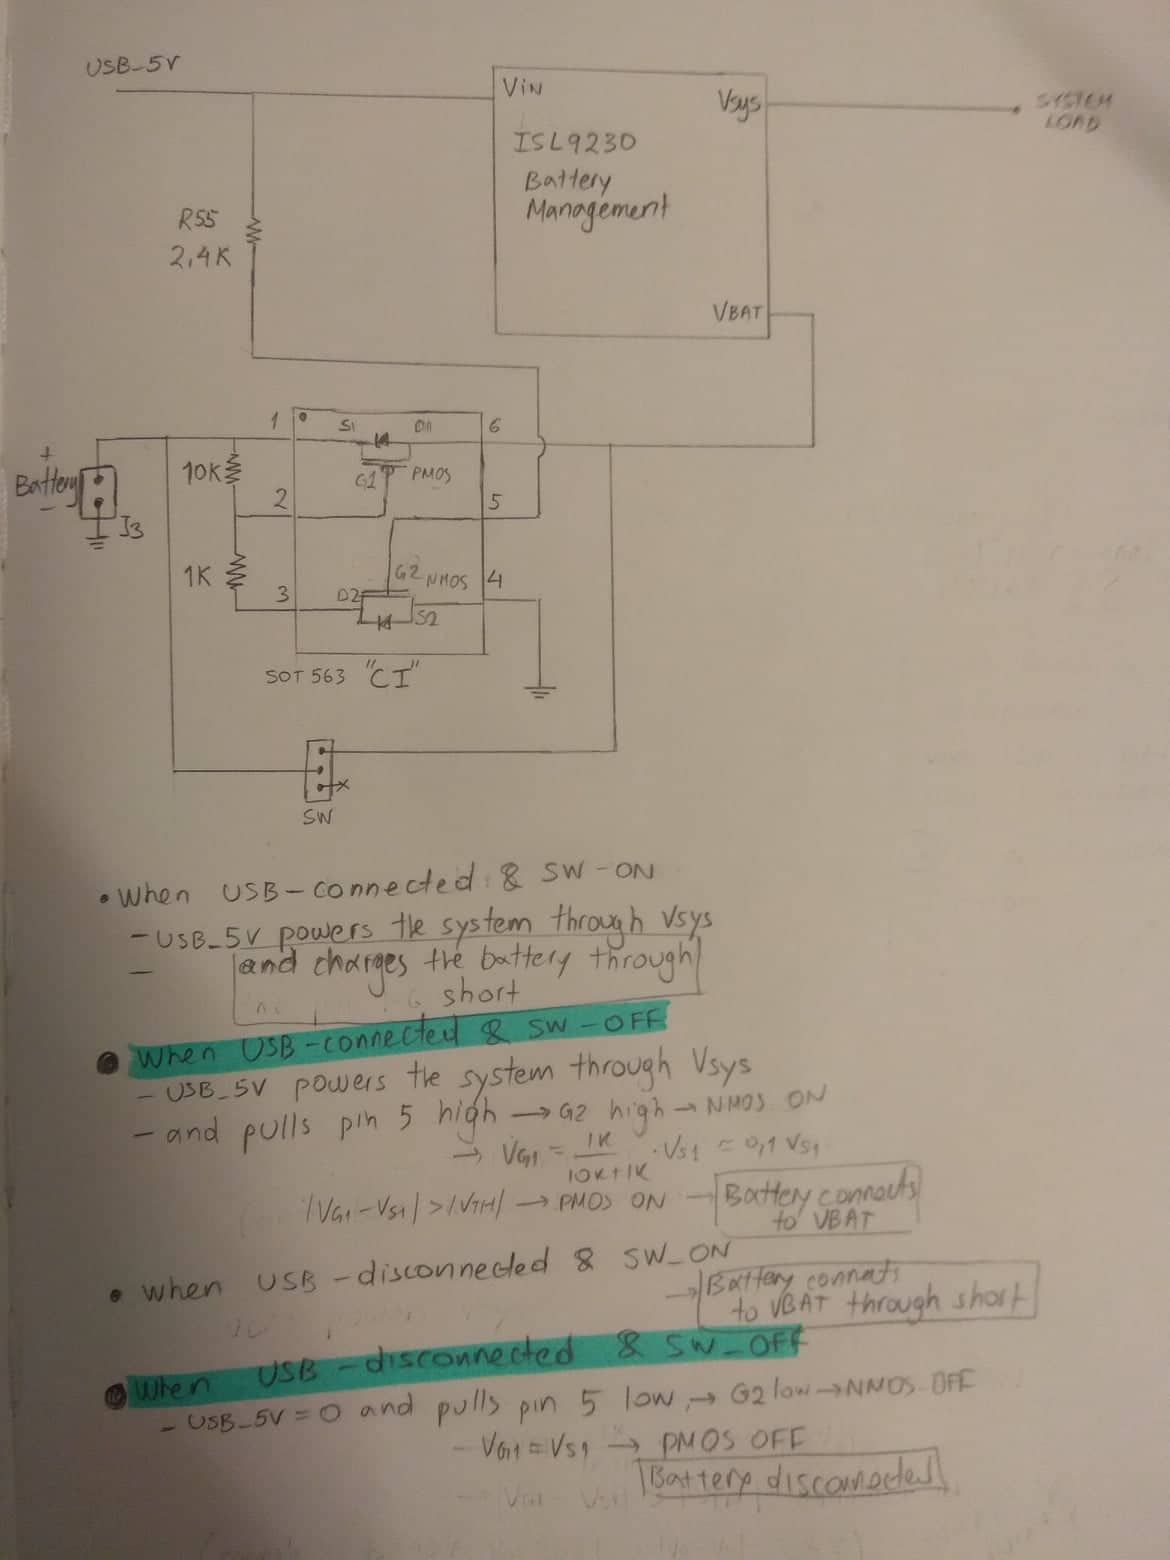 USB_5V
VIN
Vsys
SYSTEM
LOAD
ISL9230
Battery
Management
R55
2,4K
VBAT
1
S1
D1
6
+
Battery
-
J3
10K
G1
PMOS
2
5
1K
G2 NMOS
4
3
D2
S2
SOT 563 "CI"
SW
• When USB-connected & SW-ON
- USB_5V powers the system through Vsys
- and charges the battery through
short
• When USB-connected & SW-OFF
- USB_5V powers the system through Vsys
- and pulls pin 5 high → G2 high → NMOS ON
→ VG1 = 1K / 10K+1K · VS1 = 0,1 VS1
|VG1-VS1| > |VTH| → PMOS ON → Battery connects
to VBAT
• When USB-disconnected & SW_ON
→ Battery connects
to VBAT through short
• When USB-disconnected & SW_OFF
- USB_5V = 0 and pulls pin 5 low → G2 low → NMOS OFF
- VG1 = VS1 → PMOS OFF
Battery disconnected